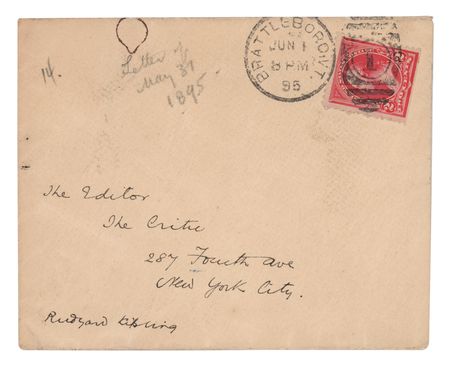 14.
Letter of
May 31
1895
BRATTLEBORO, VT.
JUN 1
8 PM
95
1
The Editor
The Critic
287 Fourth Ave
New York City.
Rudyard Kipling